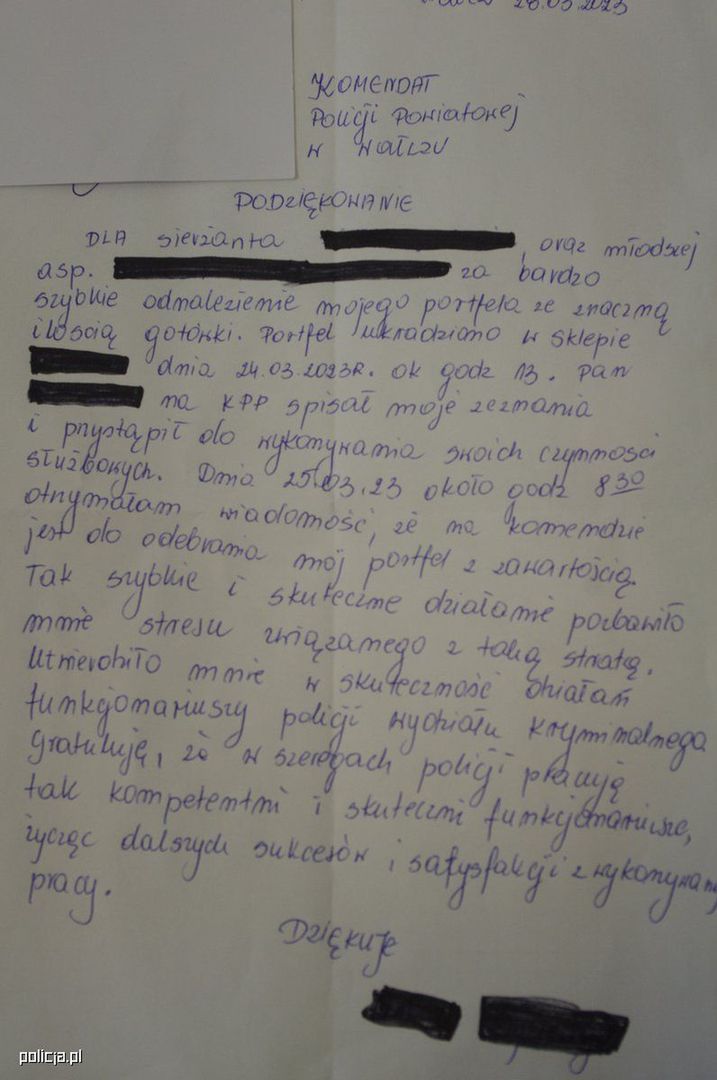 28.03.2023
KOMENDAT
Policji Powiatowej
w wałczu
PODZIĘKOWANIE
DLA sierżanta , oraz młodszej
asp. za bardzo
szybkie odnalezienie mojego portfela ze znaczną
ilością gotówki. Portfel ukradziono w sklepie
dnia 24.03.2023R. ok godz 13. Pan
na KPP spisał moje zeznania
i przystąpił do wykonywania swoich czynności
służbowych. Dnia 25.03.23 około godz 8 30
otrzymałam wiadomość, że na komendzie
jest do odebrania mój portfel z zawartością.
Tak szybkie i skuteczne działanie pozbawiło
mnie stresu związanego z taką stratą.
Utwierdziło mnie w skuteczność działań
funkcjonariuszy policji wydziału kryminalnego
Gratuluję, że w szeregach policji pracują
tak kompetentni i skuteczni funkcjonariusze,
życząc dalszych sukcesów i satysfakcji z wykonywanej
pracy.
Dziękuję
policja.pl